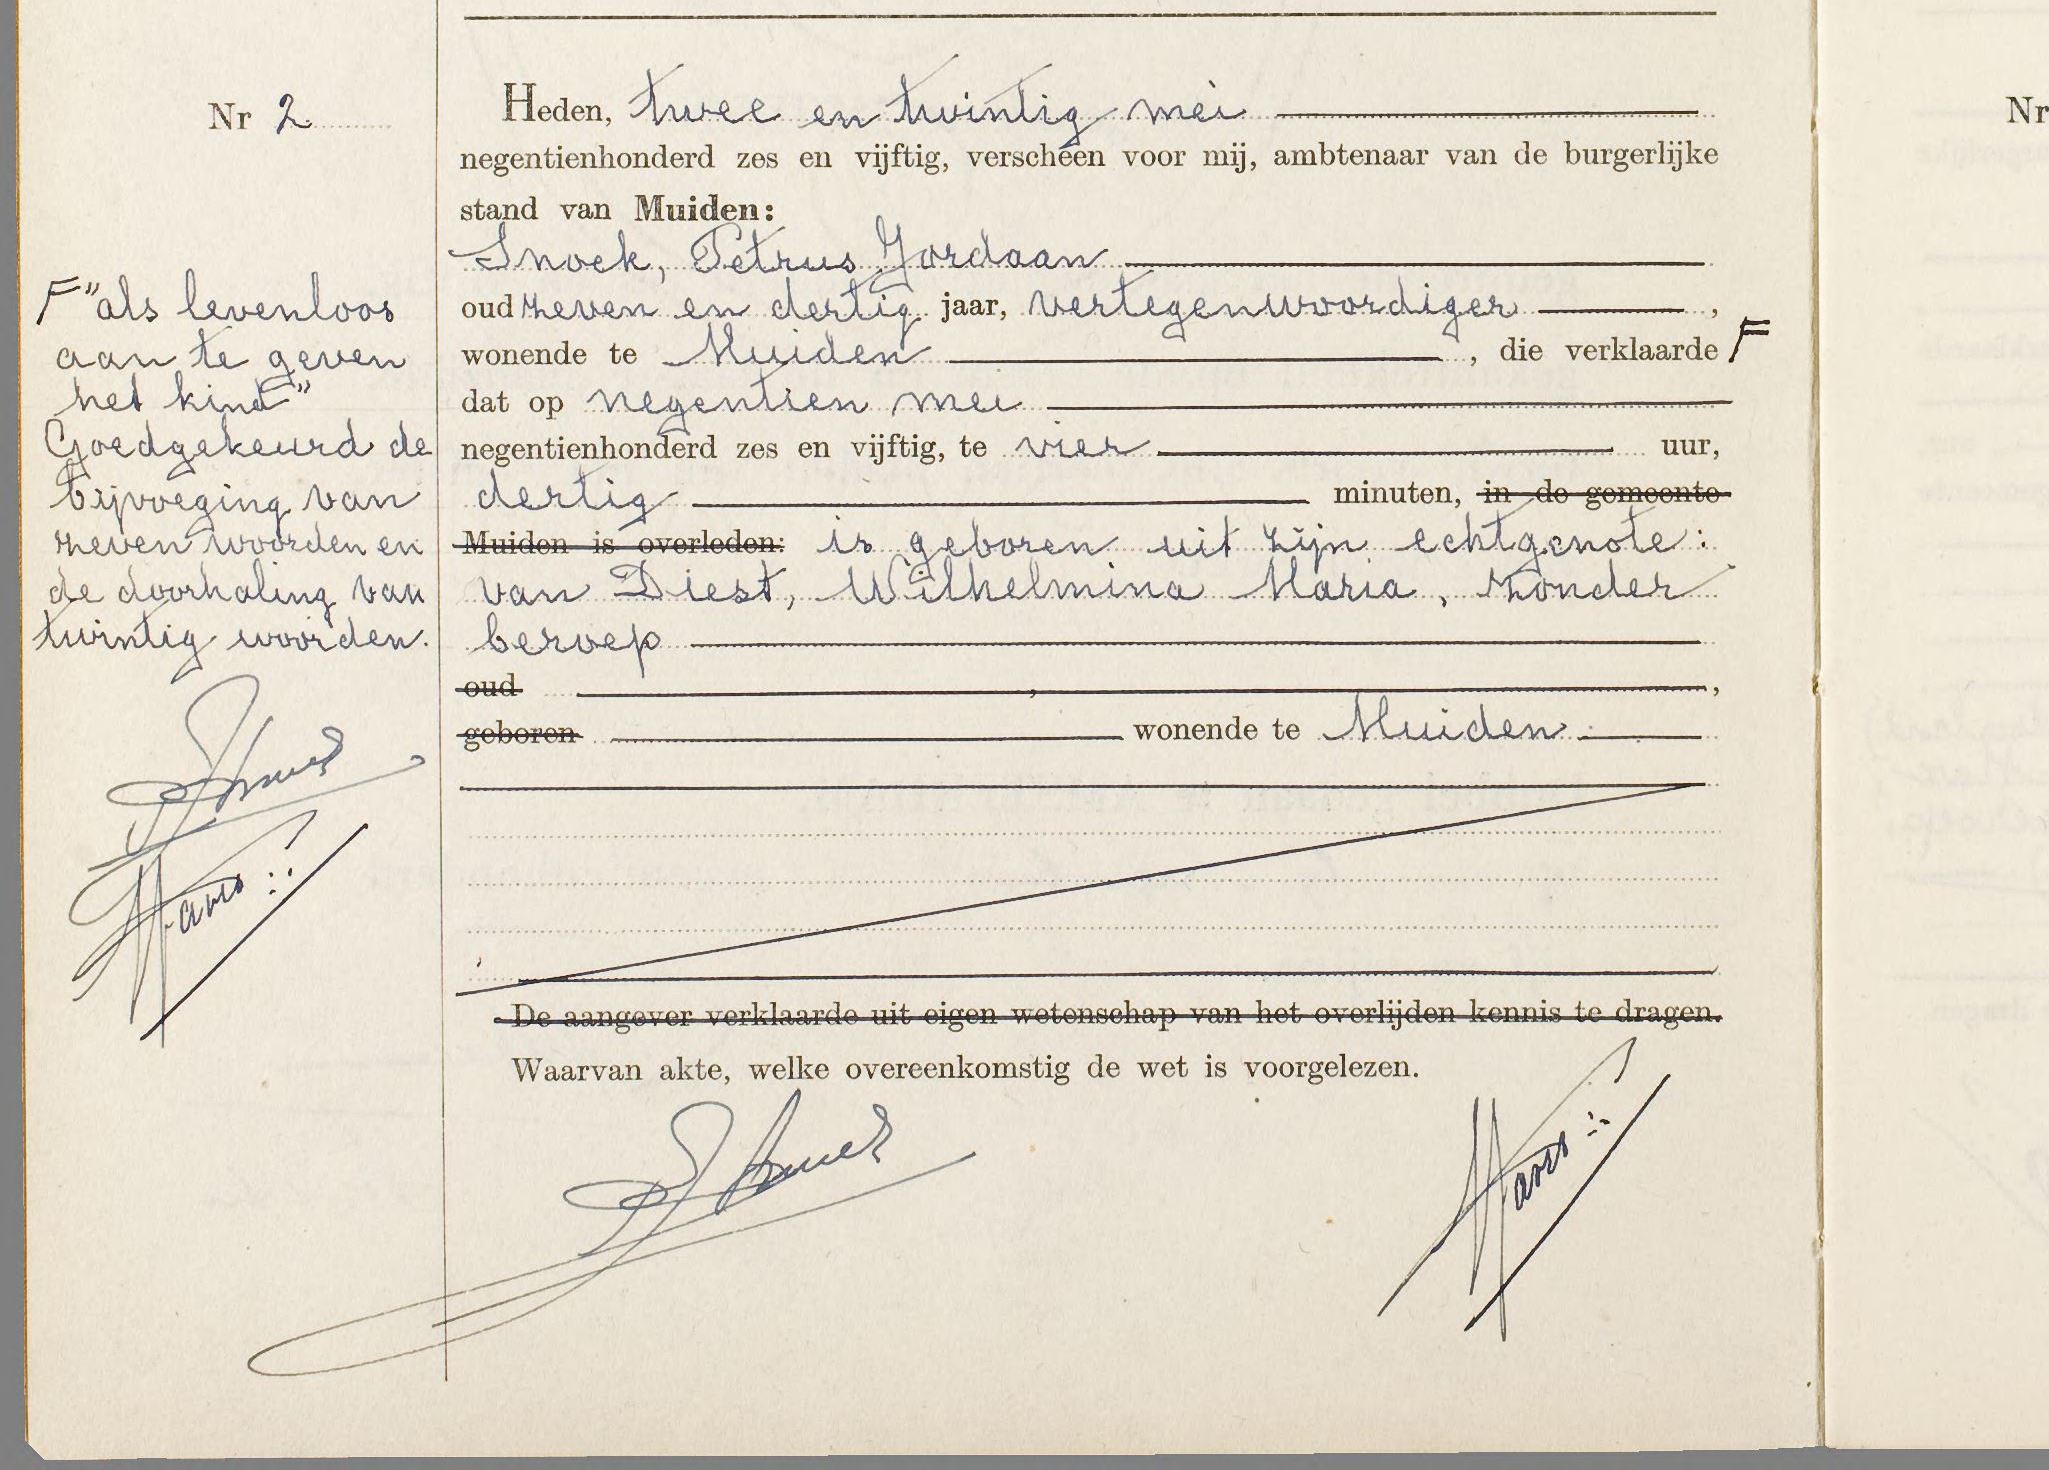 Nr 2
Heden, twee en twintig mei
negentienhonderd zes en vijftig, verscheen voor mij, ambtenaar van de burgerlijke
stand van Muiden:
Snoek, Petrus Jordaan
oud zeven en dertig jaar, vertegenwoordiger,
wonende te Muiden, die verklaarde F
dat op negentien mei
negentienhonderd zes en vijftig, te vier uur,
dertig minuten, in de gemeente
Muiden is overleden: is geboren uit zijn echtgenote:
van Diest, Wilhelmina Maria, zonder
beroep
oud , ,
geboren wonende te Muiden
De aangever verklaarde uit eigen wetenschap van het overlijden kennis te dragen.
Waarvan akte, welke overeenkomstig de wet is voorgelezen.
F "als levenloos
aan te geven
het kind"
Goedgekeurd de
bijvoeging van
zeven woorden en
de doorhaling van
twintig woorden.
Nr